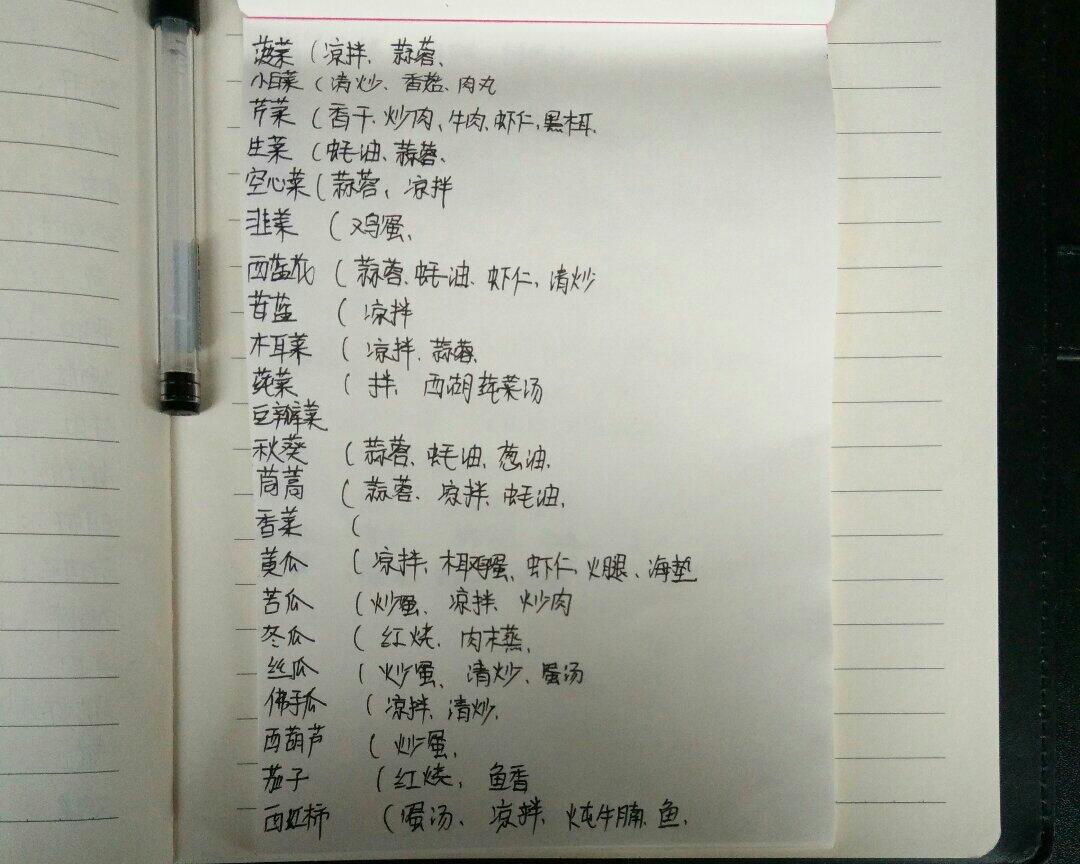 菠菜（凉拌、蒜蓉、
小白菜（清炒、香菇、肉丸
芹菜（香干、炒肉、牛肉、虾仁、黑木耳、
生菜（蚝油、蒜蓉、
空心菜（蒜蓉、凉拌
韭菜（鸡蛋、
西蓝花（蒜蓉、蚝油、虾仁、清炒
苷蓝（凉拌
木耳菜（凉拌、蒜蓉、
莼菜（拌、西湖莼菜汤
豆瓣菜
秋葵（蒜蓉、蚝油、葱油、
茼蒿（蒜蓉、凉拌、蚝油、
香菜（
黄瓜（凉拌、木耳鸡蛋、虾仁、火腿、海垫
苦瓜（炒蛋、凉拌、炒肉
冬瓜（红烧、肉末蒸、
丝瓜（炒蛋、清炒、蛋汤
佛手瓜（凉拌、清炒、
西葫芦（炒蛋、
茄子（红烧、鱼香
西红柿（蛋汤、凉拌、炖牛腩、鱼、